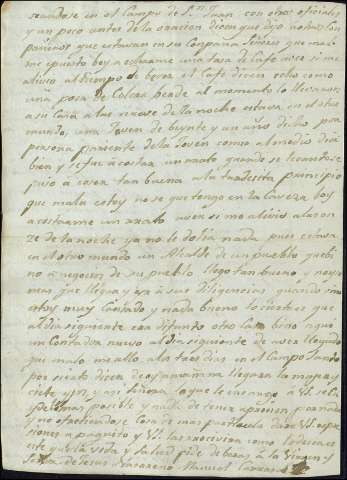 seandose en el Campo de Sn Juan con otros oficiales
y un poco antes de la oracion dicen que dijo a otros com
pañeros que estavan en su Compañia Señores que malo
me e puesto boy a echarme una tasa de Cafe aver si me
alivio al tiempo de bever el Cafe dicen echo como
una poca de Colera desde al momento lo llevaron
a su Casa a las nueve de la noche estava en el otro
mundo, una Joven de beynte y un año dicho por
persona pariente de la Joven como al medio dia
bien y se fue a costar un rrato quando se levanto se
puso a coser tan buena a la tradesita principio
que mala estoy no se que tengo en la Caveza boy
a costarme un rrato aver si me alivio a las on
ze de la noche ya no le dolia nada pues estava
en el otro mundo un Alcalde de un pueblo que bi
no a negocios de su pueblo llego tan bueno y no
mas fue llegar y yr a sus diligencias quando
estoy muy Cansado y nada bueno lo cierto es que
al dia siguiente era difunto otro bino aqui
un Contador nuevo al dia siguiente de aver llegado
que malo me allo a los tres dias en el Campo Santo
por cierto dicen de oy a mañana llegara la
y asi Señora lo que le encargo a V. se
posible y nada de tener aprension por nada
y no ofreciendose Cosa de mas particular dara V. espre
siones a paquito y V. las rrecivira como lo desea es
te que de la vida y salud pide de beras a la Virgen y
de Jesus Nazareno Manuel Carranza